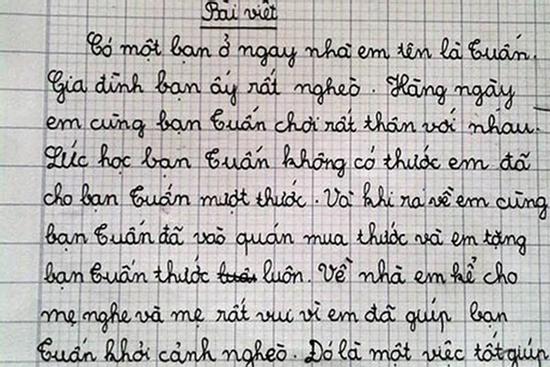 Bài viết
Có một bạn ở ngay nhà em tên là Tuấn.
Gia đình bạn ấy rất nghèo. Hàng ngày
em cùng bạn Tuấn chơi rất thân với nhau.
Lúc học bạn Tuấn không có thước em đã
cho bạn Tuấn mượt thước. Và khi ra về em cùng
bạn Tuấn đã vào quán mua thước và em tặng
bạn Tuấn thước luôn. Về nhà em kể cho
mẹ nghe và mẹ rất vui vì em đã giúp bạn
Tuấn khỏi cảnh nghèo. Đó là một việc tốt giúp